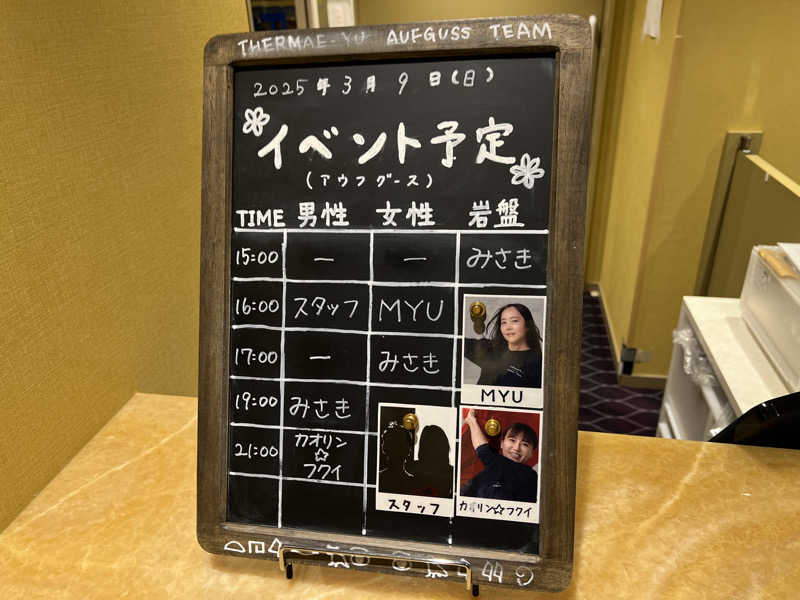 THERMAE-YU AUFGUSS TEAM
2025年3月9日(日)
イベント予定
(アウフグース)
TIME 男性 女性 岩盤
15:00 ー ー みさき
16:00 スタッフ MYU
17:00 ー みさき
MYU
19:00 みさき
21:00 カオリン☆フクイ
スタッフ カオリン☆フクイ